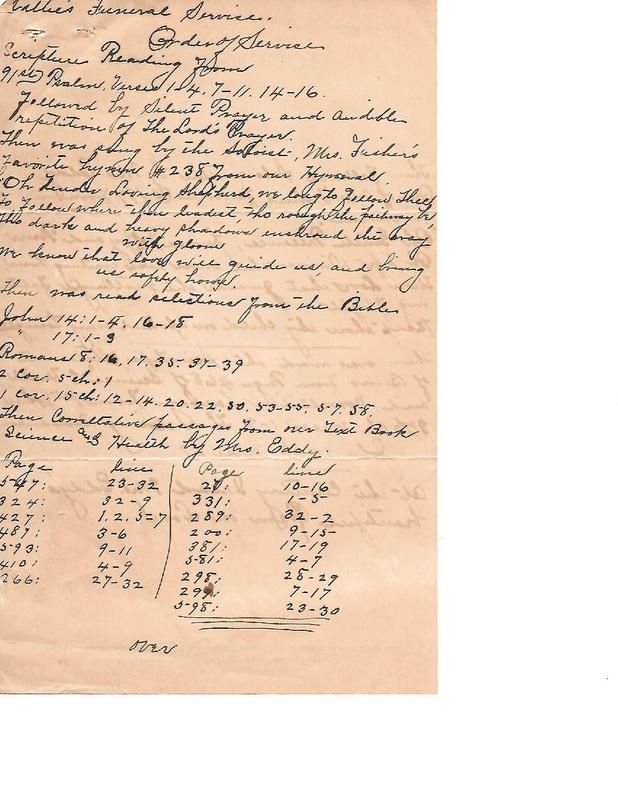 Funeral Service.
Order of Service
Scripture Reading from
91st Psalm, Verses 1-4, 7-11. 14-16.
Followed by Silent Prayer and audible
repetition of The Lord's Prayer.
Then was sung by the Soloist, Mrs. Fisher's
Favorite hymn #238 from our Hymnal
"Oh tender Loving Shepherd, we long to follow Thee
To follow where thou leadest, tho rough the pathway be
Tho dark and heavy shadows enshroud the way
with gloom
We know that love will guide us, and bring
us safely home.
Then was read selections from the Bible
John 14:1-4. 16-18
" 17:1-3
Romans 8:16, 17. 35. 37-39
2 Cor. 5 ch: 1
1 Cor. 15 ch: 12-14. 20. 22. 50. 53-55. 57. 58.
Then Correlative passages from our Text Book
Science and Health by Mrs. Eddy.
Page line Page line
547: 23-32 10-16
324: 32-9 331: 1-5
427: 1. 2. 5=7 289: 32-2
487: 3-6 200: 9-15
593: 9-11 381: 17-19
410: 4-9 581: 4-7
266: 27-32 298: 28-29
299: 7-17
598: 23-30
over